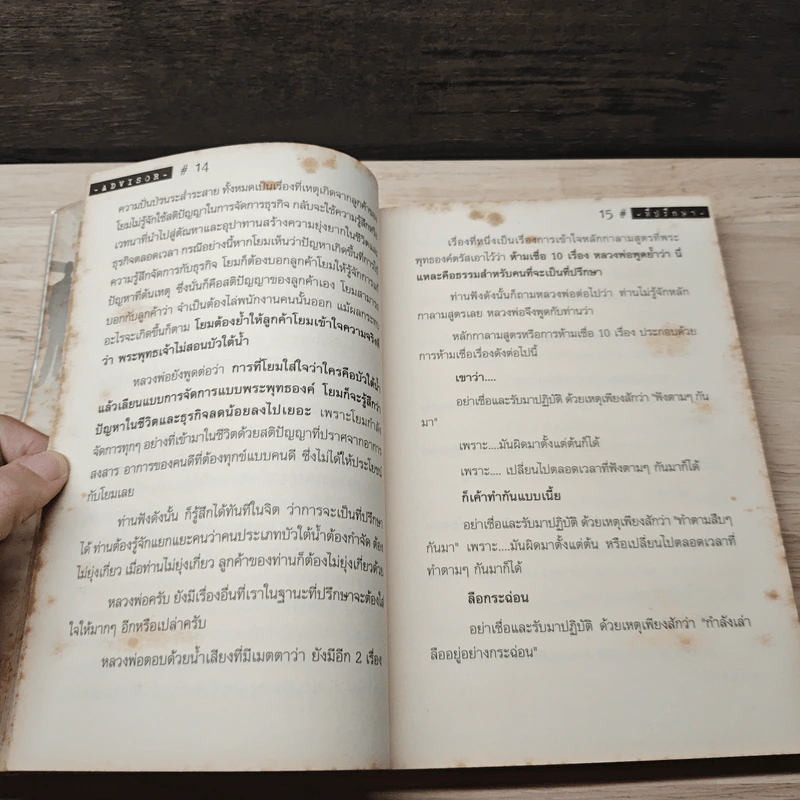 -ADVISOR- # 14
ความปั่นป่วนระส่ำระสาย ทั้งหมดเป็นเรื่องที่เหตุเกิดจากลูกค้าของ
โยมไม่รู้จักใช้สติปัญญาในการจัดการธุรกิจ กลับจะใช้ความรู้สึก
เวทนาที่นำไปสู่ตัณหาและอุปาทานสร้างความยุ่งยากในชีวิตและ
ธุรกิจตลอดเวลา กรณีอย่างนี้หากโยมเห็นว่าปัญหาเกิดขึ้นที่การใช้
ความรู้สึกจัดการกับธุรกิจ โยมก็ต้องบอกลูกค้าโยมให้รู้จักการแก้
ปัญหาที่ต้นเหตุ ซึ่งนั่นก็คือสติปัญญาของลูกค้าเอง โยมสามารถ
บอกกับลูกค้าว่า จำเป็นต้องไล่พนักงานคนนั้นออก แม้ผลกระทบ
อะไรจะเกิดขึ้นก็ตาม โยมต้องย้ำให้ลูกค้าโยมเข้าใจความจริงที่
ว่า พระพุทธเจ้าไม่สอนบัวใต้น้ำ
หลวงพ่อยังพูดต่อว่า การที่โยมใส่ใจว่าใครคือบัวใต้น้ำ
แล้วเลียนแบบการจัดการแบบพระพุทธองค์ โยมก็จะรู้สึกว่า
ปัญหาในชีวิตและธุรกิจลดน้อยลงไปเยอะ เพราะโยมกำลัง
จัดการทุกๆ อย่างที่เข้ามาในชีวิตด้วยสติปัญญาที่ปราศจากอาการ
สงสาร อาการของคนดีที่ต้องทุกข์แบบคนดี ซึ่งไม่ได้ให้ประโยชน์
กับโยมเลย
ท่านฟังดังนั้น ก็รู้สึกได้ทันทีในจิต ว่าการจะเป็นที่ปรึกษา
ได้ ท่านต้องรู้จักแยกแยะคนว่าคนประเภทบัวใต้น้ำต้องกำจัด ต้อง
ไม่ยุ่งเกี่ยว เมื่อท่านไม่ยุ่งเกี่ยว ลูกค้าของท่านก็ต้องไม่ยุ่งเกี่ยวด้วย
หลวงพ่อครับ ยังมีเรื่องอื่นที่เราในฐานะที่ปรึกษาจะต้องใส่
ใจให้มากๆ อีกหรือเปล่าครับ
หลวงพ่อตอบด้วยน้ำเสียงที่มีเมตตาว่า ยังมีอีก 2 เรื่อง
15 # -ที่ปรึกษา-
เรื่องที่หนึ่งเป็นเรื่องการเข้าใจหลักกาลามสูตรที่พระ
พุทธองค์ตรัสเอาไว้ว่า ห้ามเชื่อ 10 เรื่อง หลวงพ่อพูดย้ำว่า นี่
แหละคือธรรมสำหรับคนที่จะเป็นที่ปรึกษา
ท่านฟังดังนั้นก็ถามหลวงพ่อต่อไปว่า ท่านไม่รู้จักหลัก
กาลามสูตรเลย หลวงพ่อจึงพูดกับท่านว่า
หลักกาลามสูตรหรือการห้ามเชื่อ 10 เรื่อง ประกอบด้วย
การห้ามเชื่อเรื่องดังต่อไปนี้
เขาว่า....
อย่าเชื่อและรับมาปฏิบัติ ด้วยเหตุเพียงสักว่า "ฟังตามๆ กัน
มา"
เพราะ....มันผิดมาตั้งแต่ต้นก็ได้
เพราะ.... เปลี่ยนไปตลอดเวลาที่ฟังตามๆ กันมาก็ได้
ก็เค้าทำกันแบบเนี้ย
อย่าเชื่อและรับมาปฏิบัติ ด้วยเหตุเพียงสักว่า "ทำตามสืบๆ
กันมา" เพราะ....มันผิดมาตั้งแต่ต้น หรือเปลี่ยนไปตลอดเวลาที่
ทำตามๆ กันมาก็ได้
ลือกระฉ่อน
อย่าเชื่อและรับมาปฏิบัติ ด้วยเหตุเพียงสักว่า "กำลังเล่า
ลืออยู่อย่างกระฉ่อน"